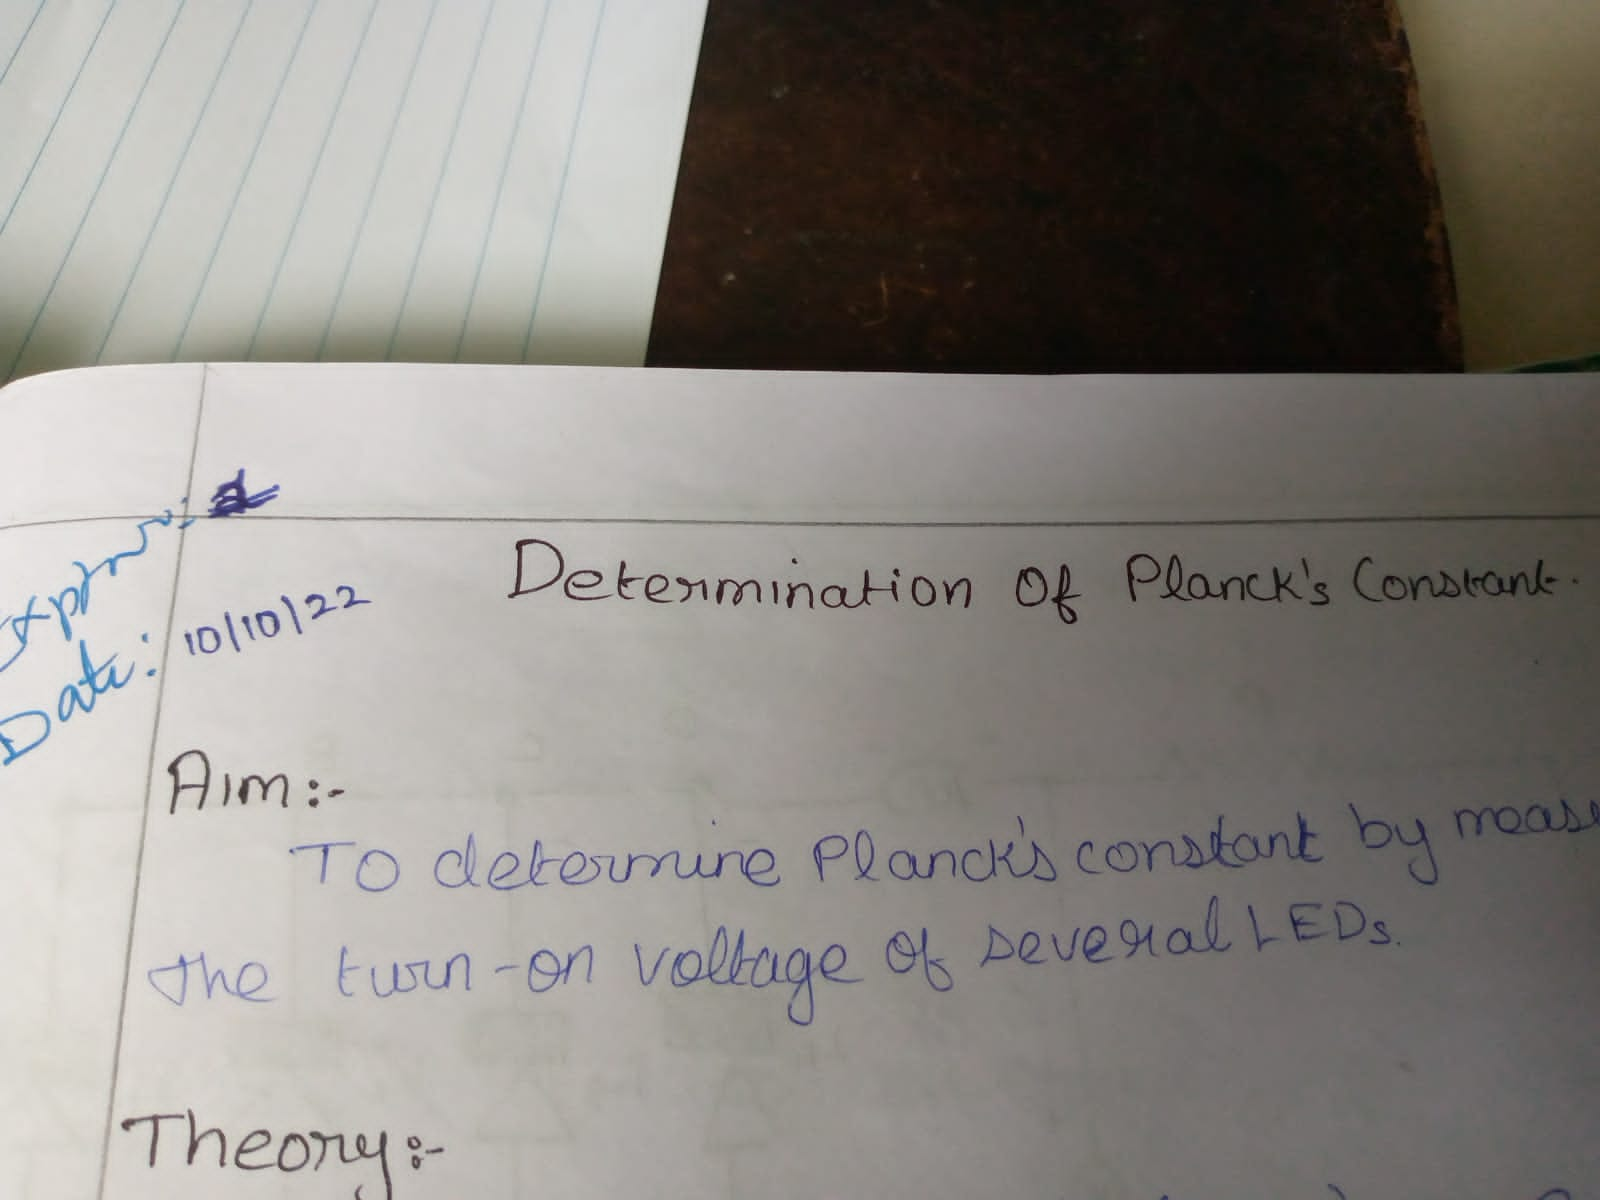 Exptno:
Date: 10/10/22
Determination Of Planck's Constant.
Aim:-
To determine Planck's constant by meas
the turn-on voltage of several LEDs.
Theory:-